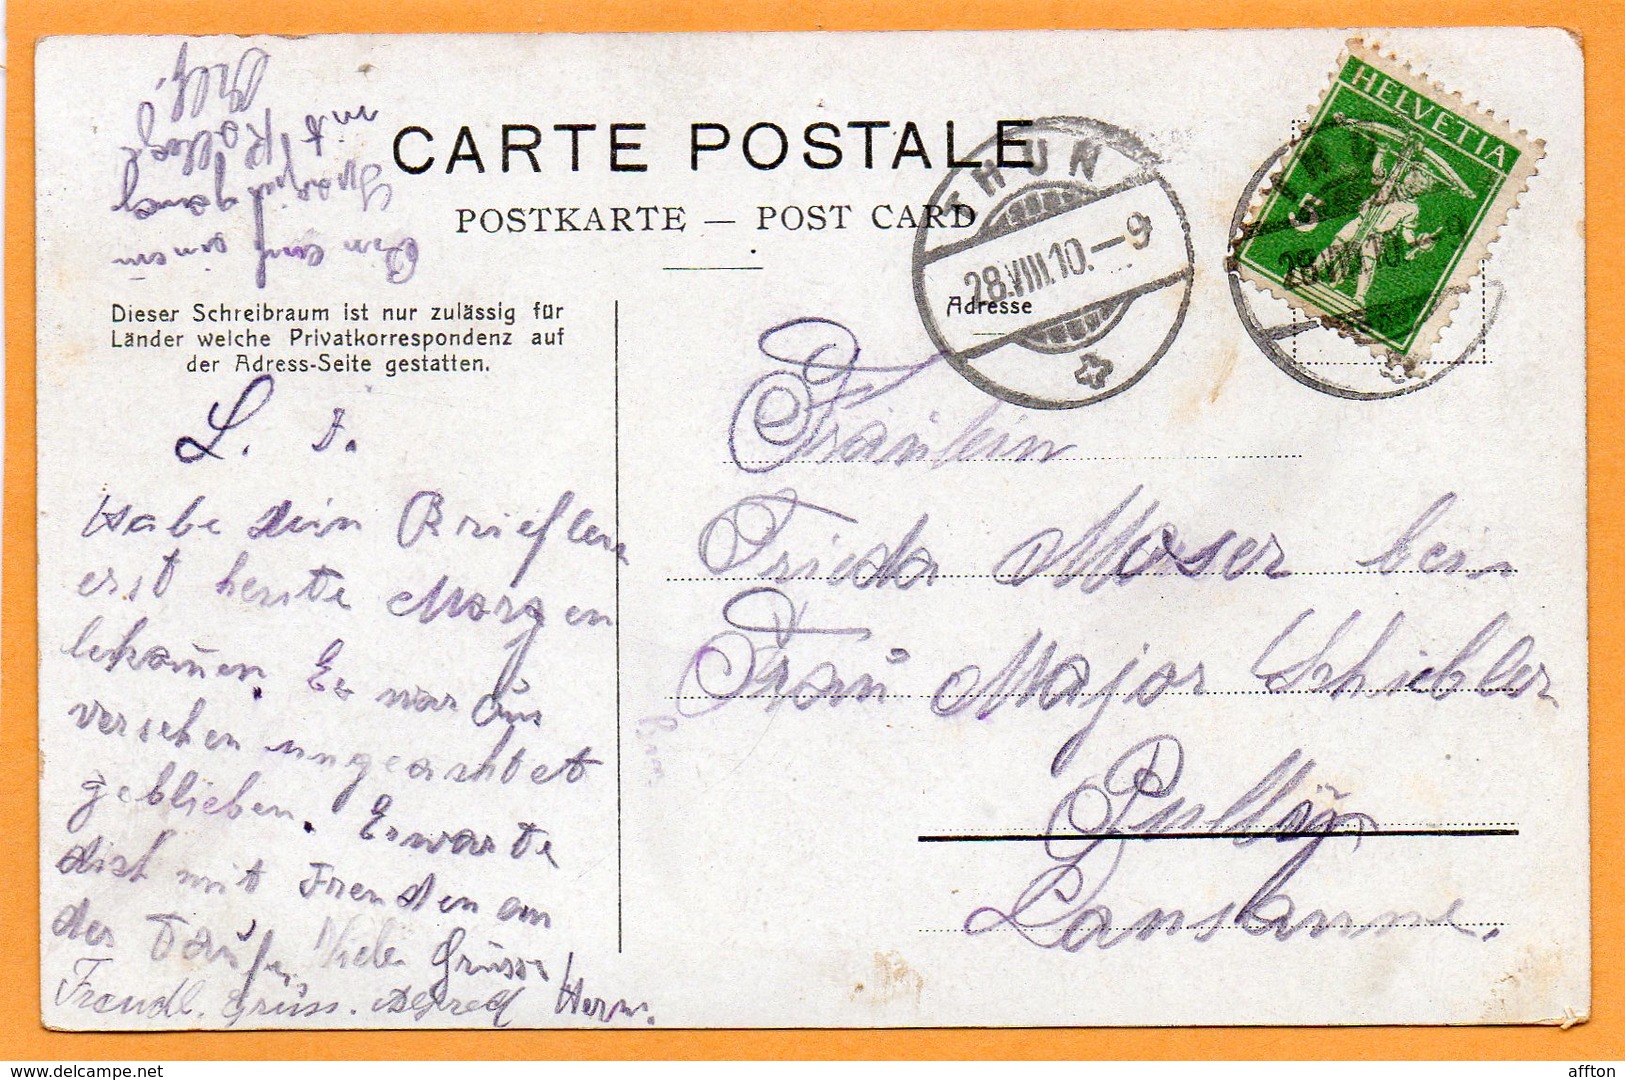 CARTE POSTALE
POSTKARTE — POST CARD
Dieser Schreibraum ist nur zulässig für
Länder welche Privatkorrespondenz auf
der Adress-Seite gestatten.
Adresse
HELVETIA
5
THUN
28.VIII.10.–9
THUN
28.VIII.10.–9
mit Kolleg
auf einem
L. F.
Habe dein Brieflein
erst heute Morgen
bekommen. Es war aus
versehen ungeachtet
geblieben. Erwarte
dich mit Freuden an
der Taufe. Viele Grüsse
Freudl. Gruss. Alfred Herm.
Fräulein
Frieda Moser bei
Frau Major Schiebler
Pully
Lausanne.
www.delcampe.net
affton